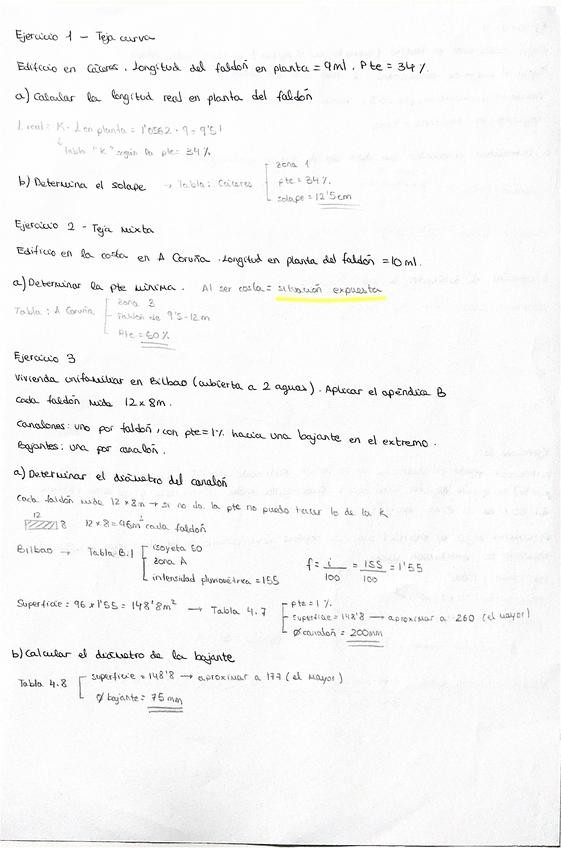 Ejercicio 1 - Teja curva
Edificio en Cáceres. Longitud del faldón en planta = 9ml. Pte = 34%.
a) Calcular la longitud real en planta del faldón
L real = K · L en planta = 1'0562 · 9 = 9'51
Tabla "K" según la pte = 34%
b) Determina el solape → Tabla: Cáceres
zona 1
pte = 34%
solape = 12'5cm
Ejercicio 2 - Teja mixta
Edificio en la costa en A Coruña. Longitud en planta del faldón = 10ml.
a) Determinar la pte mínima. Al ser costa = situación expuesta
Tabla: A Coruña
zona 3
faldón de 9'5-12m
Pte = 50%
Ejercicio 3
Vivienda unifamiliar en Bilbao (cubierta a 2 aguas). Aplicar el apéndice B
Cada faldón mide 12x8m.
Canalones: uno por faldón, con pte = 1% hacia una bajante en el extremo.
Bajantes: una por canalón.
a) Determinar el diámetro del canalón
Cada faldón mide 12x8m → si no da la pte no puedo hacer lo de la K
12
8 12x8 = 96m² cada faldón
Bilbao → Tabla B.1
isoyeta 50
zona A
intensidad pluviométrica = 155
f = i/100 = 155/100 = 1'55
Superficie = 96 x 1'55 = 148'8m² → Tabla 4.7
pte = 1%
superficie = 148'8 → aproximar a 260 (el mayor)
Ø canalón = 200mm
b) Calcular el diámetro de la bajante
Tabla 4.8
superficie = 148'8 → aproximar a 177 (el mayor)
Ø bajante = 75mm